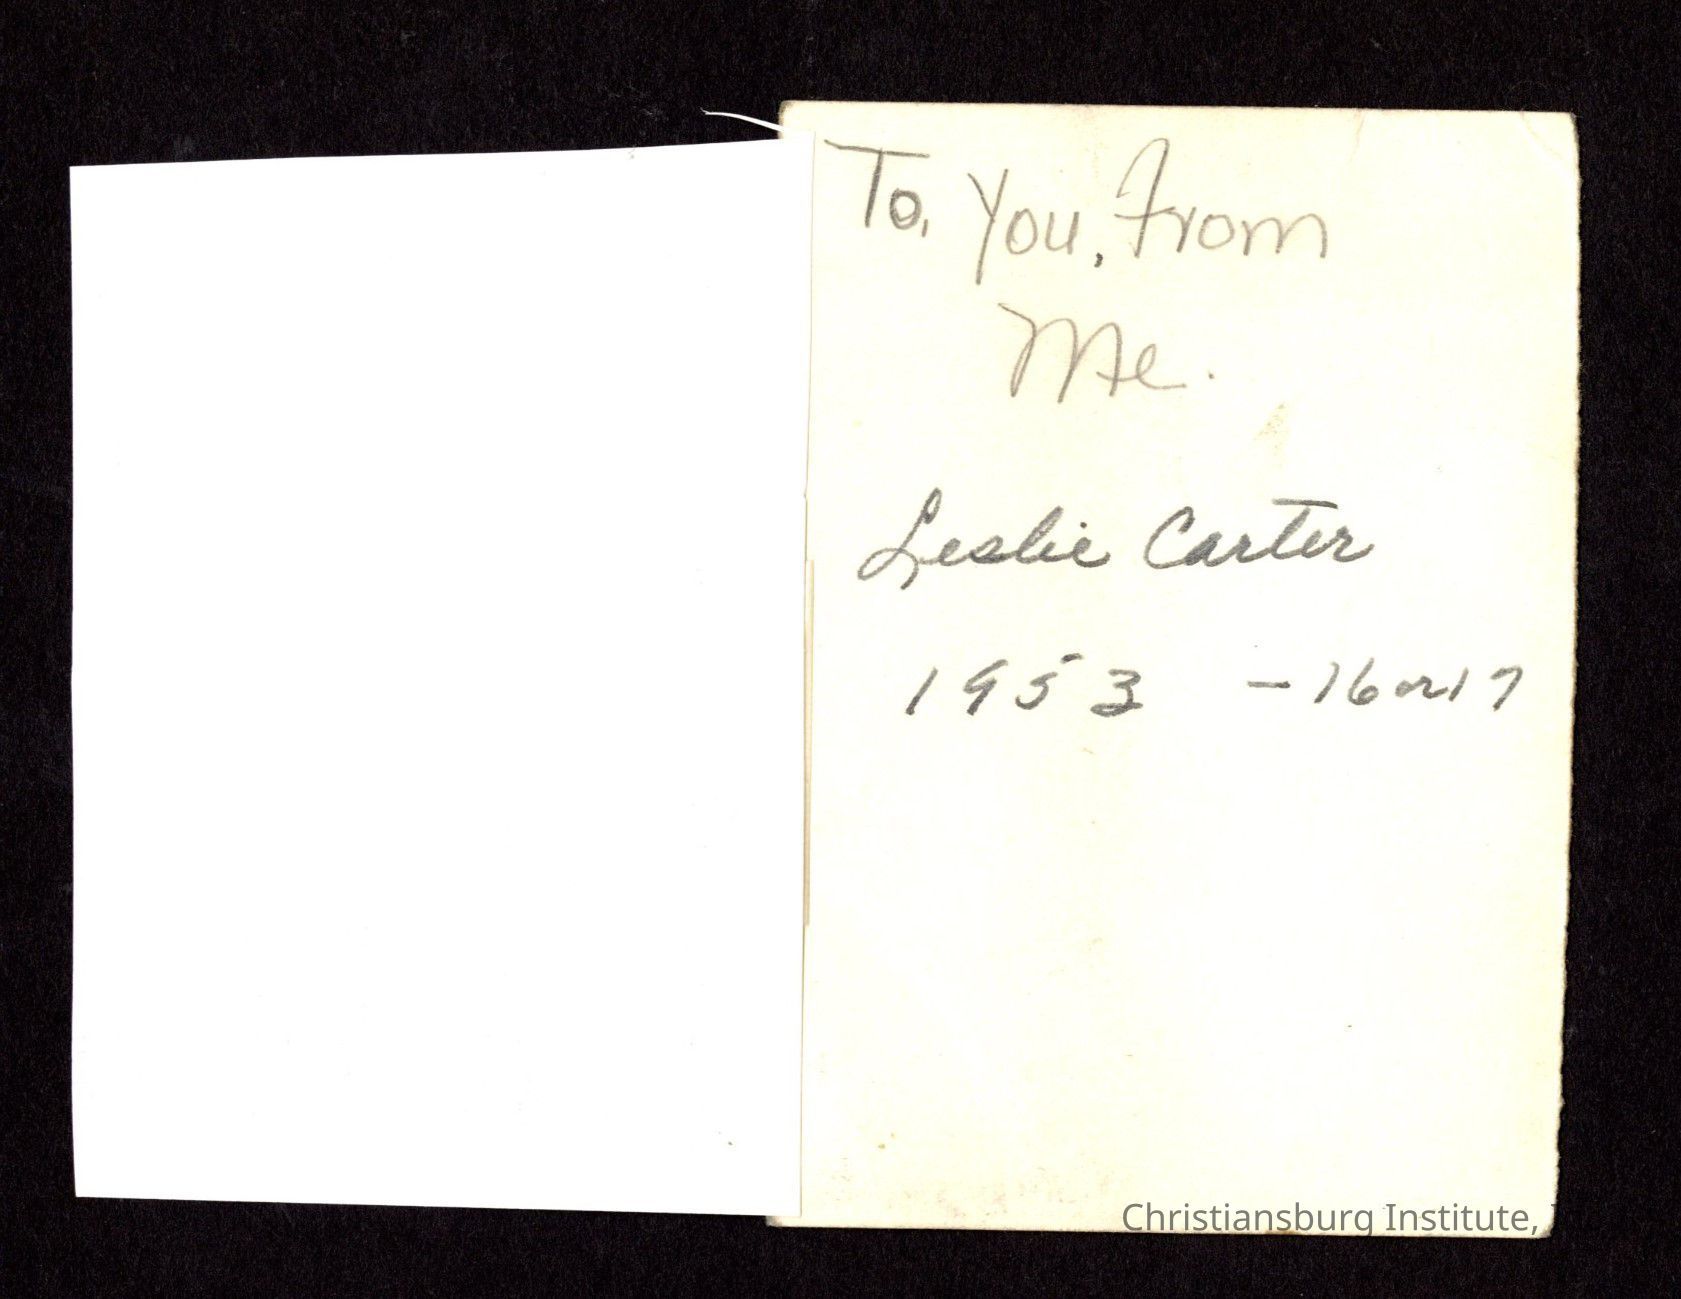 To, You, From
Me.
Leslie Carter
1953 - 16 or 17
Christiansburg Institute,